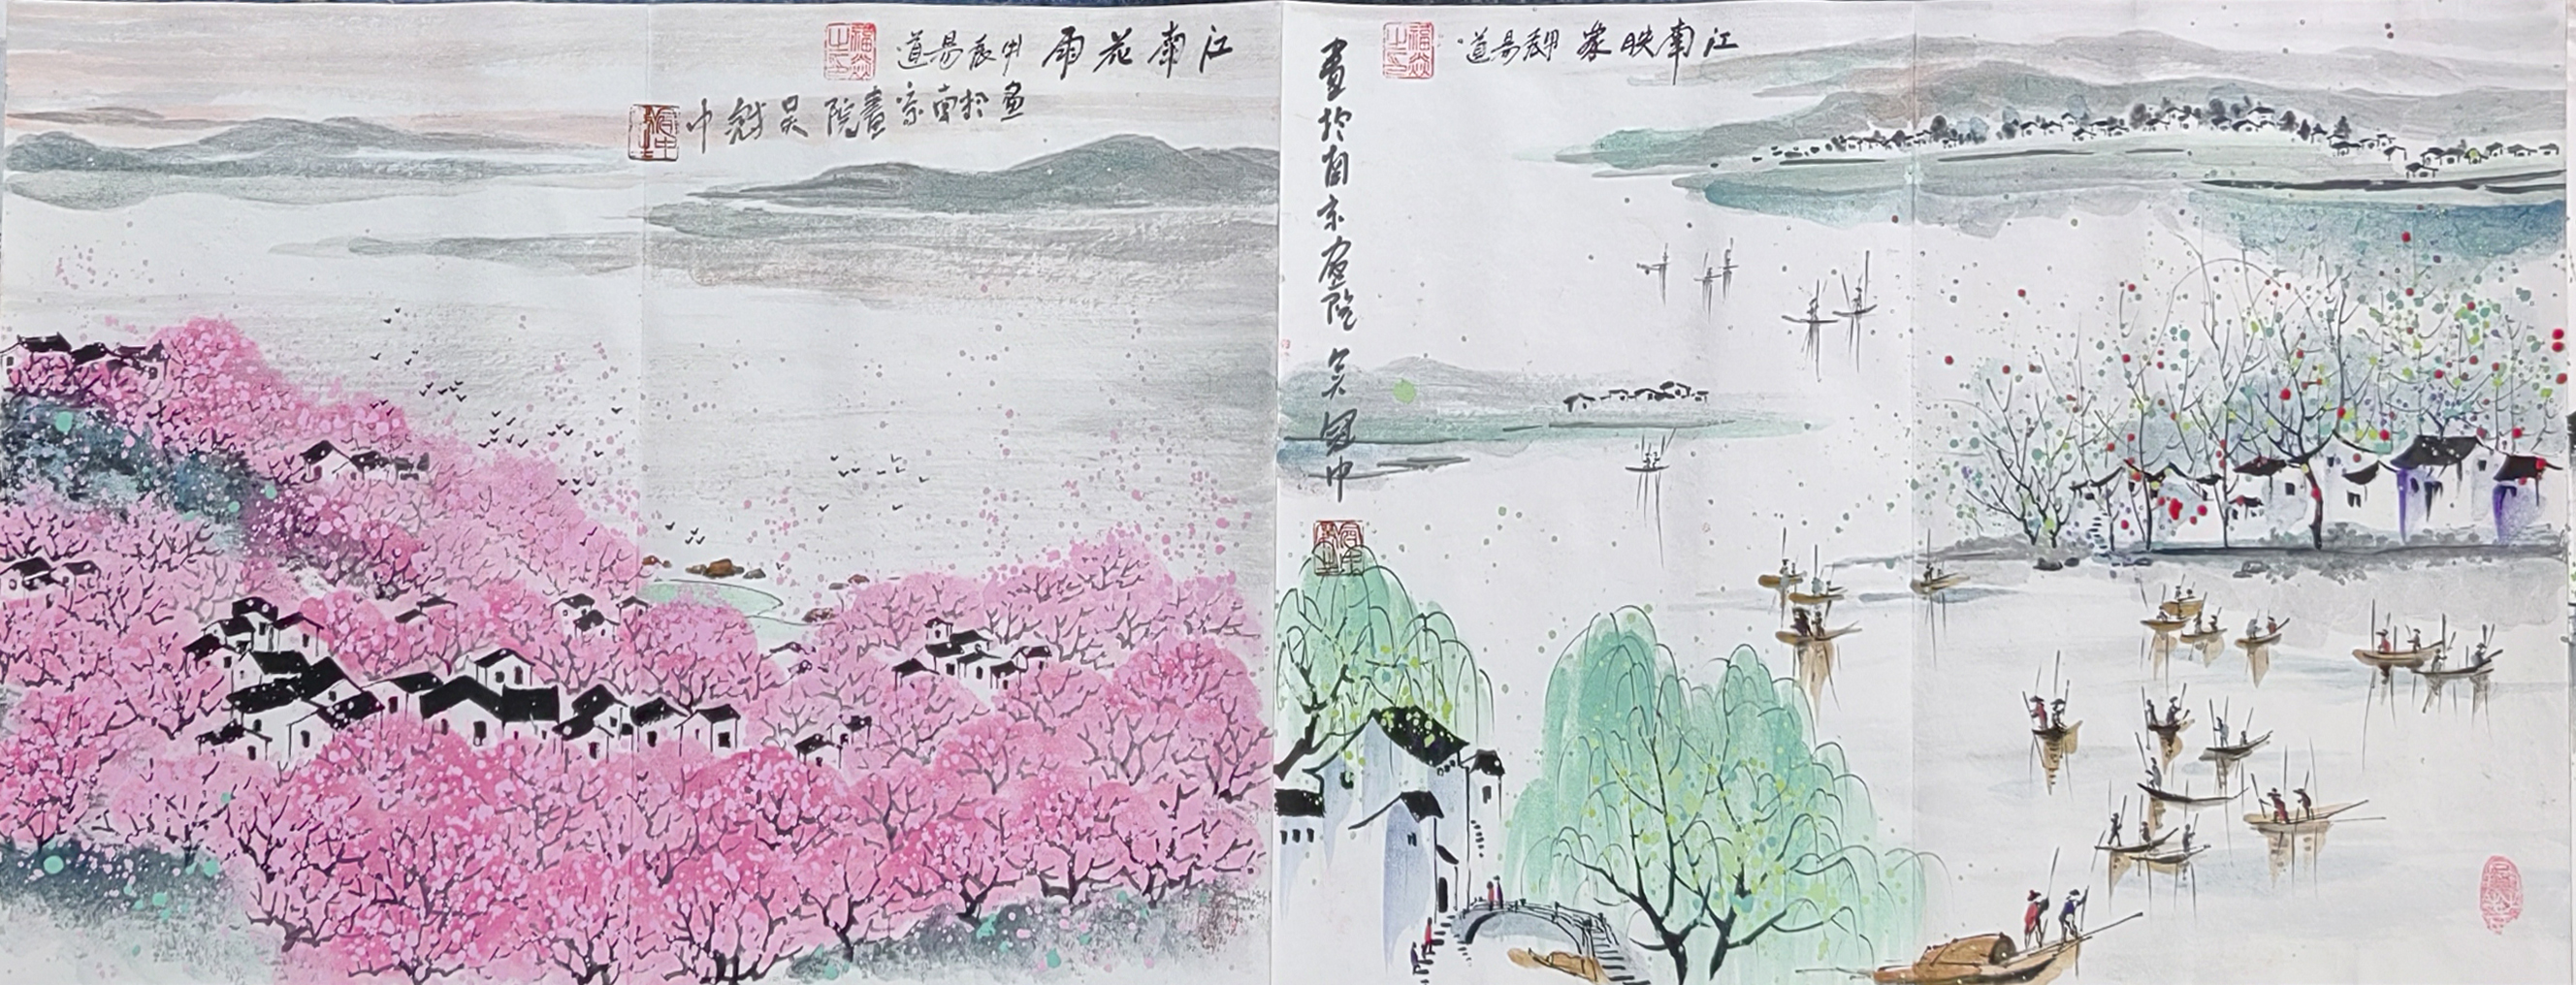 江南映象 甲辰易道
畫於南京画院 吴冠中
江南花雨 甲辰易道
画於南京畫院 吴冠中